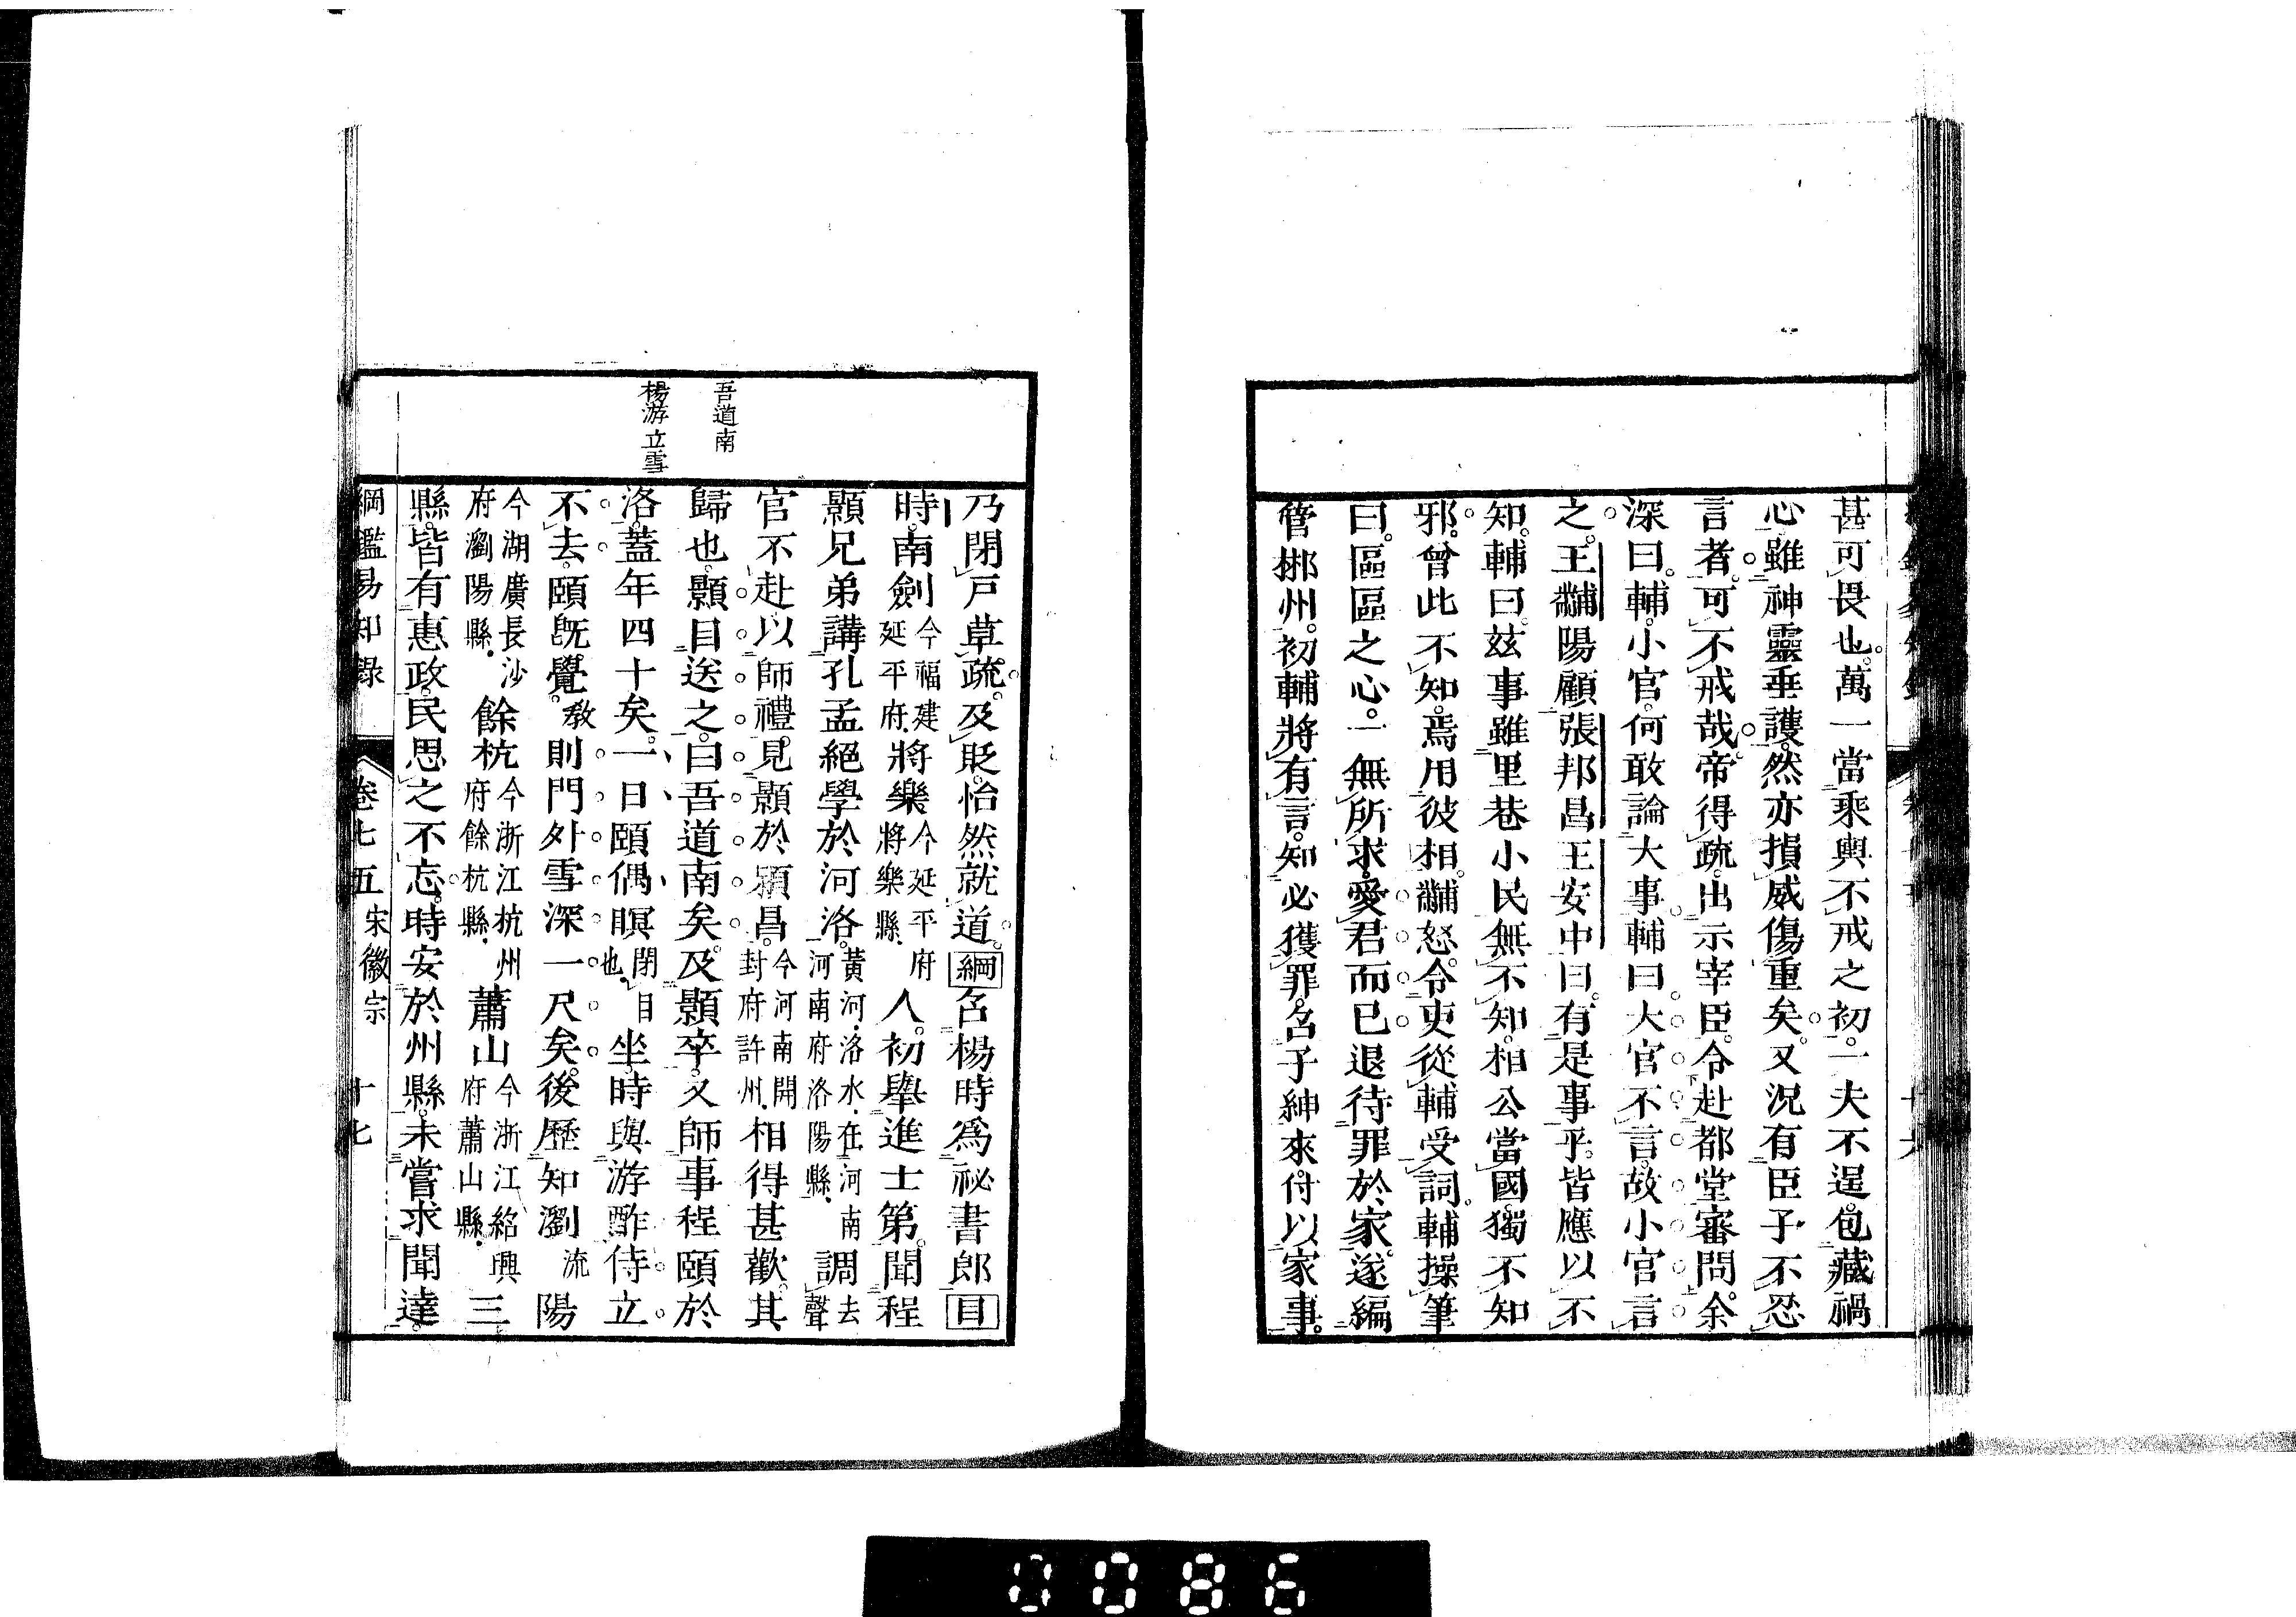 甚可畏也。萬一當乘輿不戒之初。一夫不逞。包藏禍
心。雖神靈垂護。然亦損威傷重矣。又況有臣子不忍
言者。可不戒哉。帝得疏。出示宰臣。令赴都堂審問。余
深曰。輔。小官。何敢論大事。輔曰。大官不言。故小官言
之。王黼陽顧張邦昌王安中曰。有是事乎。皆應以不
知。輔曰。兹事雖里巷小民無不知。相公當國。獨不知
邪。曾此不知。焉用彼相。黼怒。令吏從輔受詞。輔操筆
曰。區區之心。一無所求。愛君而已。退待罪於家。遂編
管郴州。初輔將有言。知必獲罪。名子紳來。付以家事。
吾道南
楊游立雪
乃閉戶草疏。及貶。怡然就道。綱名楊時爲祕書郎目
時。南劍今福建延平府.將樂今延平府將樂縣.人。初舉進士第。聞程
顥兄弟講孔孟絕學於河洛。黃河.洛水.在河南河南府洛陽縣.調去聲
官不赴。以師禮。見顥於潁昌。今河南開封府許州.相得甚歡。其
歸也。顥目送之。曰吾道南矣。及顥卒。又師事程頤於
洛。蓋年四十矣。一日頤偶瞑閉目也.坐。時與游酢侍立
不去。頤旣覺。敎則門外雪深一尺矣。後歷知瀏流陽
今湖廣長沙府瀏陽縣.餘杭今浙江杭州府餘杭縣.蕭山今浙江紹興府蕭山縣.三
縣。皆有惠政。民思之不忘。時安於州縣。未嘗求聞達。
綱鑑易知錄 卷七五 宋徽宗 十七